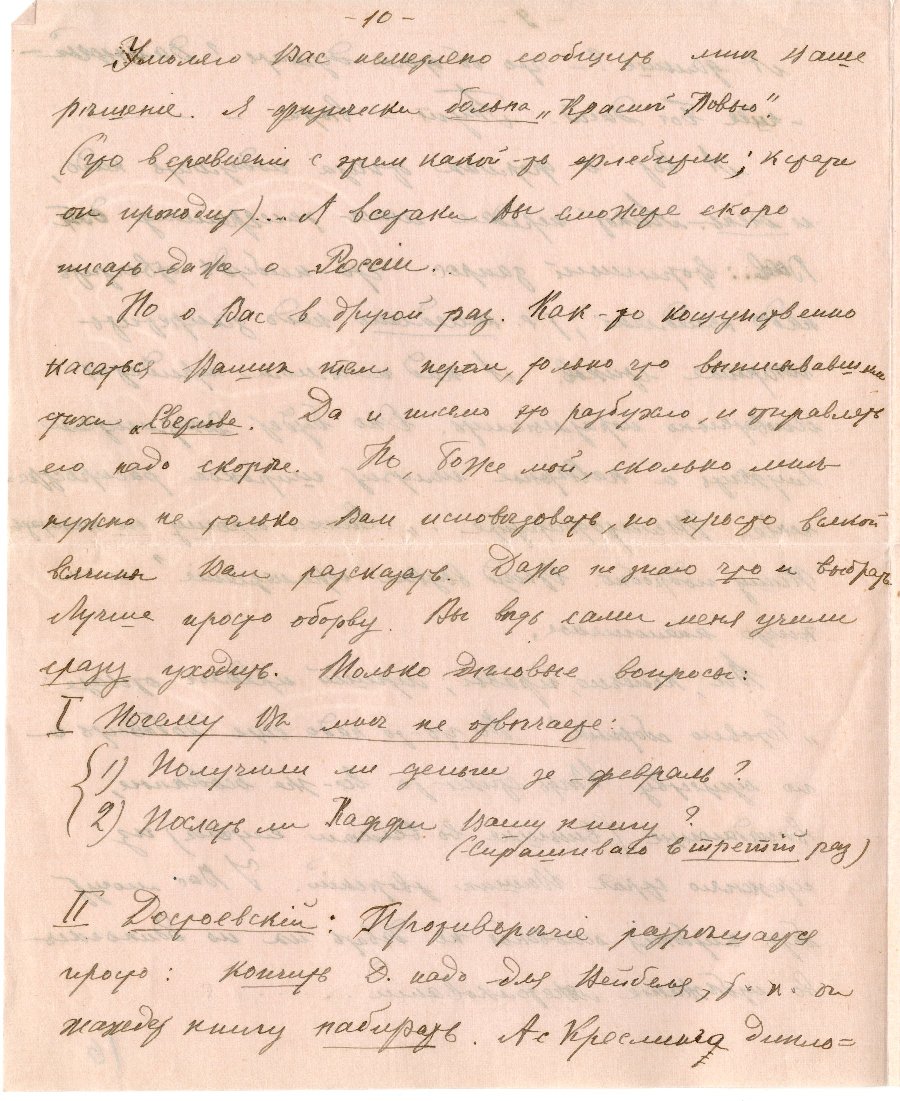 - 10 -
Умоляю Вас немедлено сообщить мнѣ Ваше
рѣшенiе. Я физически больна „Красной Новью".
(Что в сравненiи с этим какой-то флебитик; кстати
он проходит)... А всетаки Вы сможете скоро
писать даже о Россiи..
Но о Вас в другой раз. Как-то кощунственно
касаться Ваших тем пером, только что выписывавшим
стихи о Сверлове. Да и письмо это разбухло, и отправлять
его надо скорѣе. Но, Боже мой, сколько мнѣ
нужно не только Вам исповѣдовать, но просто всякой
всячины Вам разсказать. Даже не знаю что и выбрать.
Лучше просто оборву. Вы вѣдь сами меня учили
сразу уходить. Только дѣловые вопросы:
I Почему Вы мнѣ не отвѣчаете:
1) Получили ли деньги за февраль?
2) Послать ли Каффи Вашу книгу?
(Спрашиваю в третiй раз)
II Достоевскiй: Противорѣчiе разрѣшается
просто: Кончить Д. надо для Нейбеля, т. к. он
жаждет книгу набирать. А с Креслинга дипло=